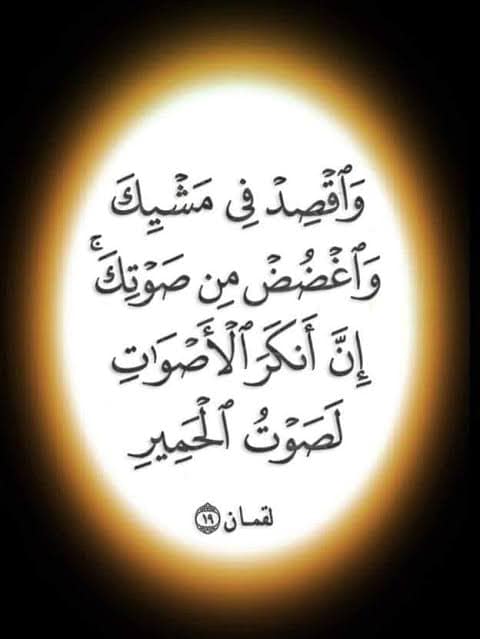 وَٱقۡصِدۡ فِي مَشۡيِكَ
وَٱغۡضُضۡ مِن صَوۡتِكَۚ
إِنَّ أَنكَرَ ٱلۡأَصۡوَٰتِ
لَصَوۡتُ ٱلۡحَمِيرِ
لقمان ١٩